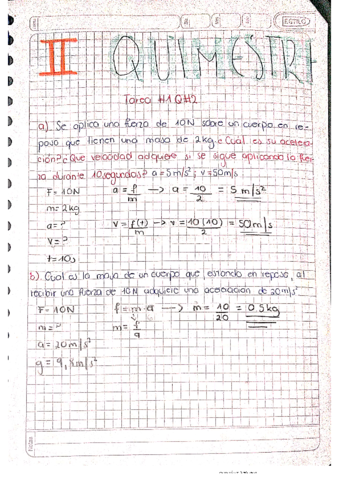 II QUIMESTRE
Tarea #1 Q#2
a) Se aplica una fuerza de 10N sobre un cuerpo en re-
poso que tienen una masa de 2kg. ¿Cuál es su acelera-
ción? ¿Que velocidad adquiere si se sigue aplicando la fuer-
za durante 10segundos? a = 5 m/s²; v = 50m/s
F = 10N a = f/m → a = 10/2 = 5 m/s²
m = 2kg
a = ? v = f(t)/m → v = 10(10)/2 = 50m/s
v = ?
t = 10s
b) Cual es la masa de un cuerpo que, estando en reposo, al
recibir una fuerza de 10N adquiere una aceleración de 20m/s²
F = 10N f = m·a → m = 10/20 = 0.5kg
m = ? m = f/a
a = 20m/s²
g = 9,8m/s²